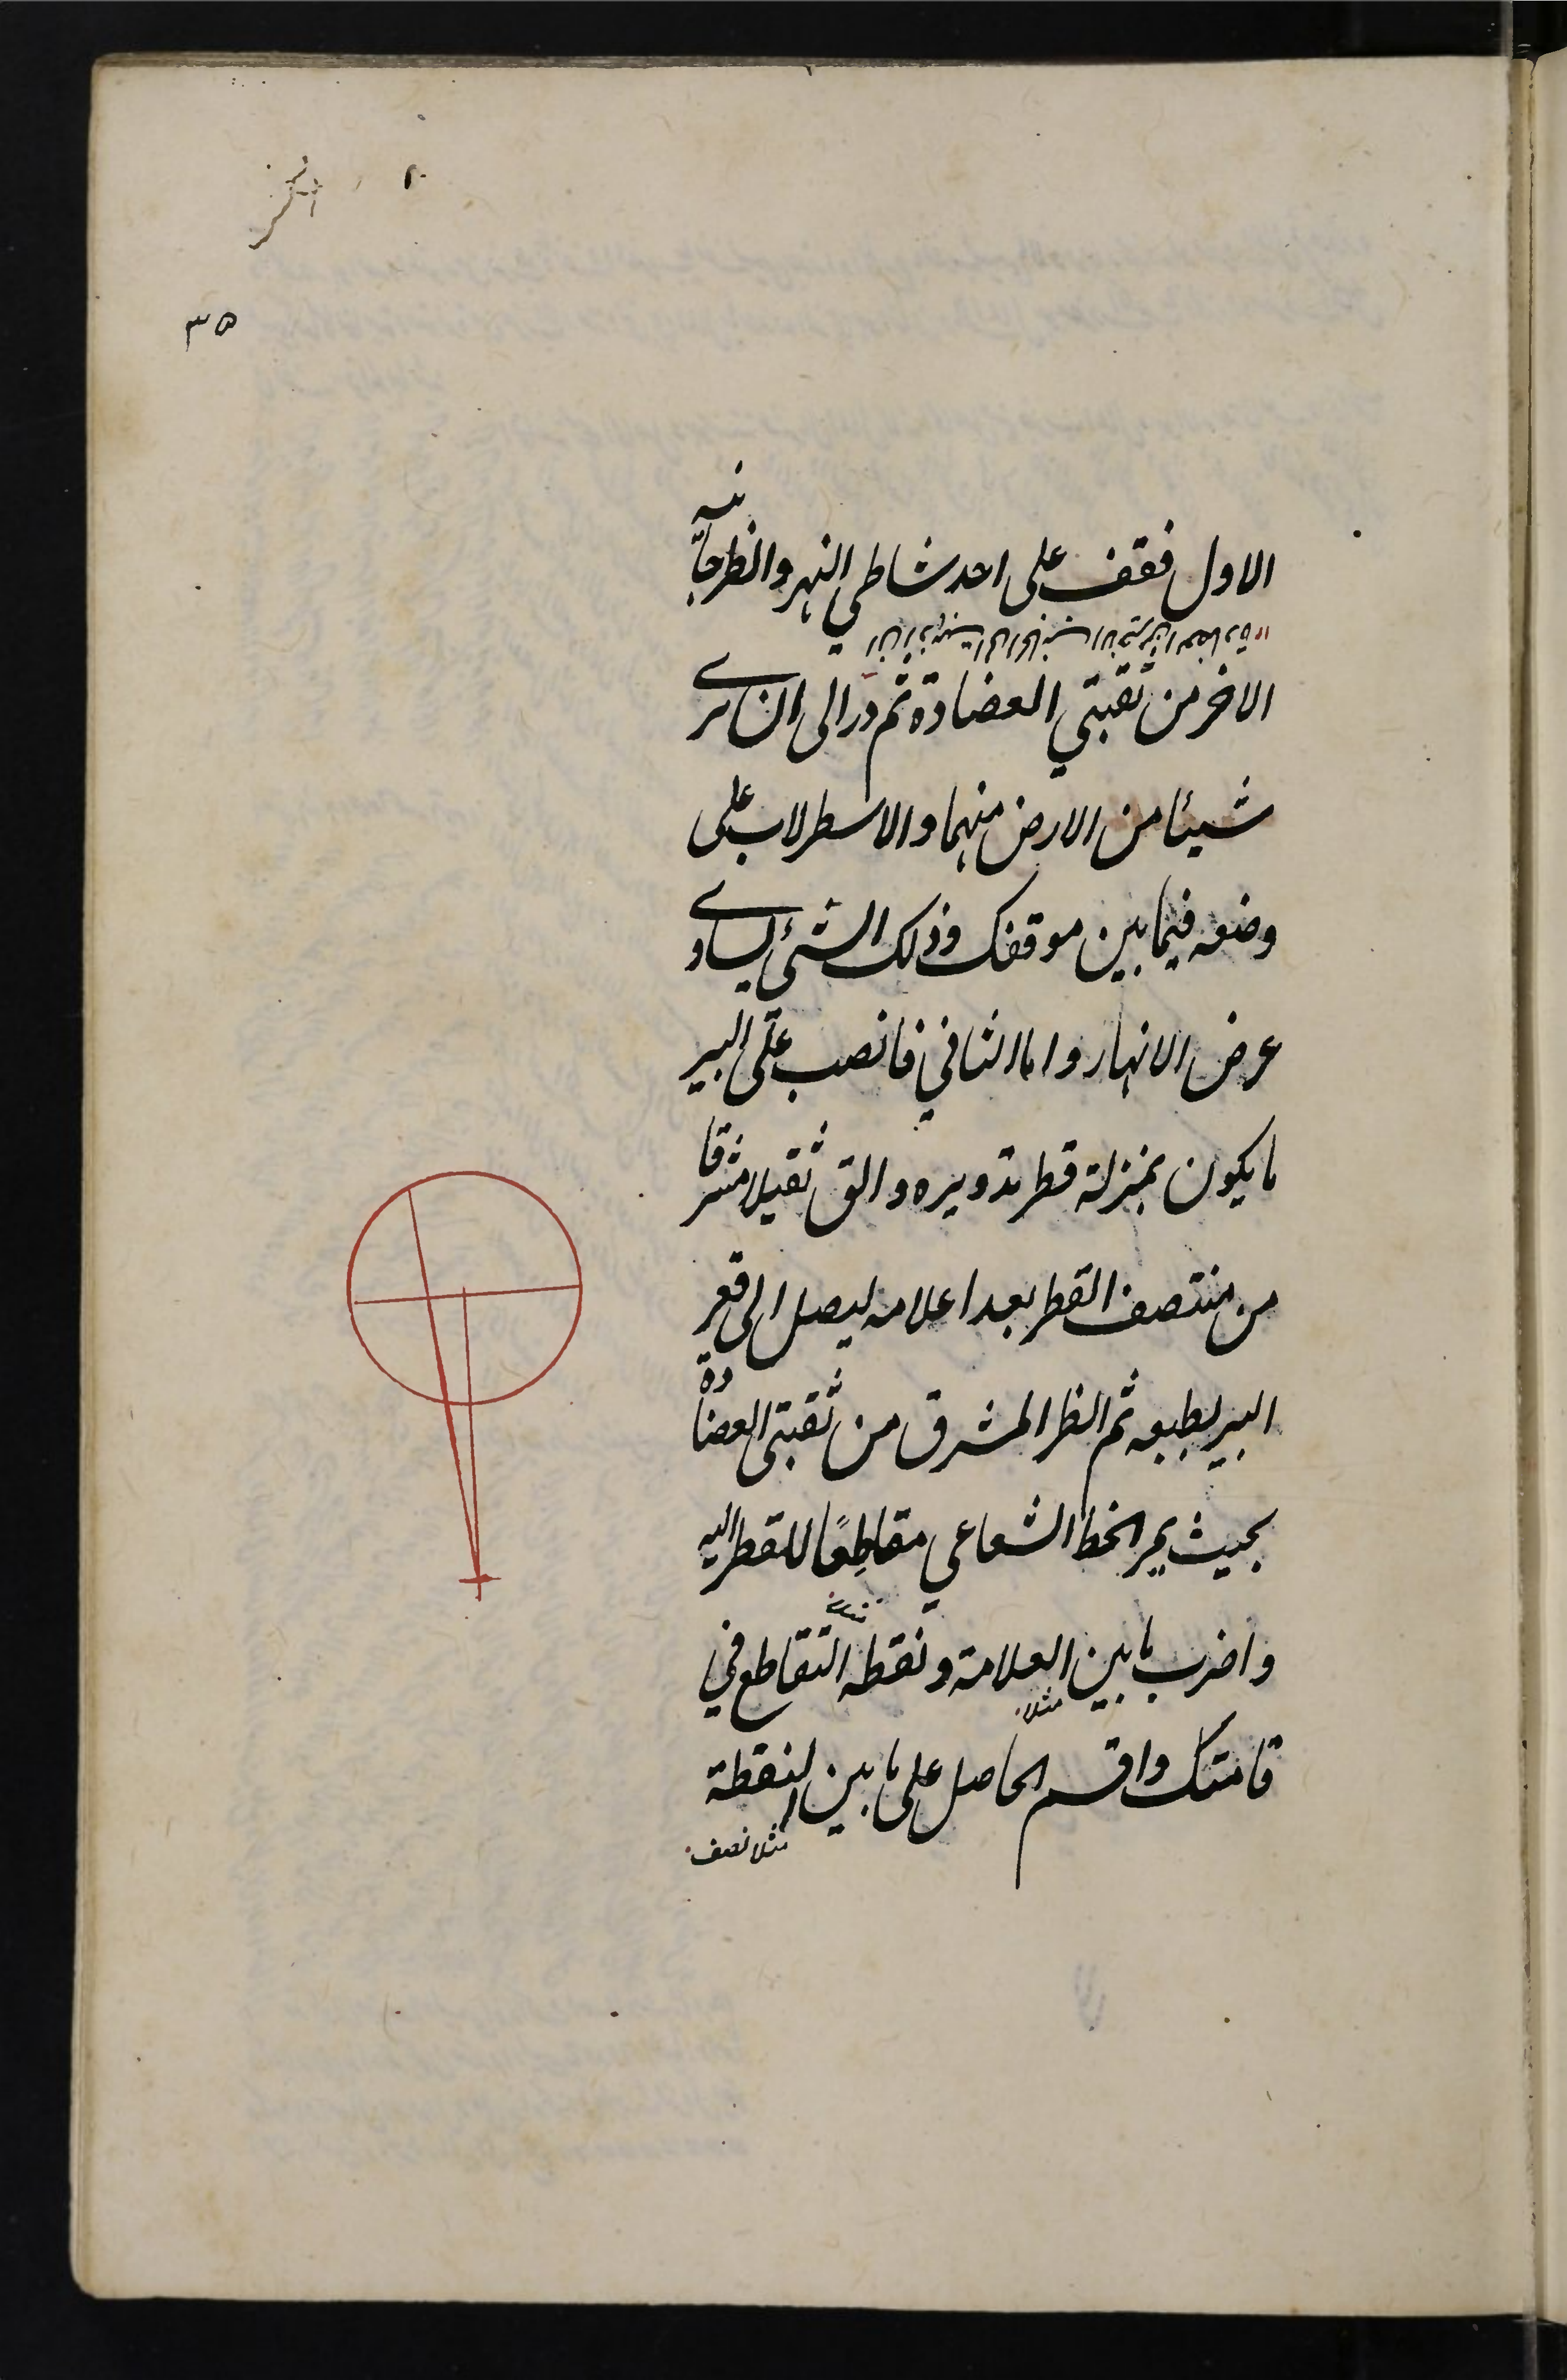 ٣٥
الاول فقف على احد شاطي النهر وانظر جانبه
الاخر من ثقبتي العضادة ثم در الى ان ترى
شيئا من الارض منهما والاسطرلاب على
وضعه فيما بين موقفك وذلك الشئ يساوى
عرض الانهار واما الثاني فانصب على البير
ما يكون بمنزلة قطر تدويره والق ثقيلا مشرقا
من منتصف القطر بعد اعلامه ليصل الى قعر
البير بطبعه ثم انظر المشرق من ثقبتى العضادة
بحيث يمر الخط الشعاعي مقاطعًا للقطر اليه
واضرب ما بين العلامة ونقطه التقاطع في
مثلا
قامتك واقسم الحاصل على ما بين النقطة
مثلا نصف